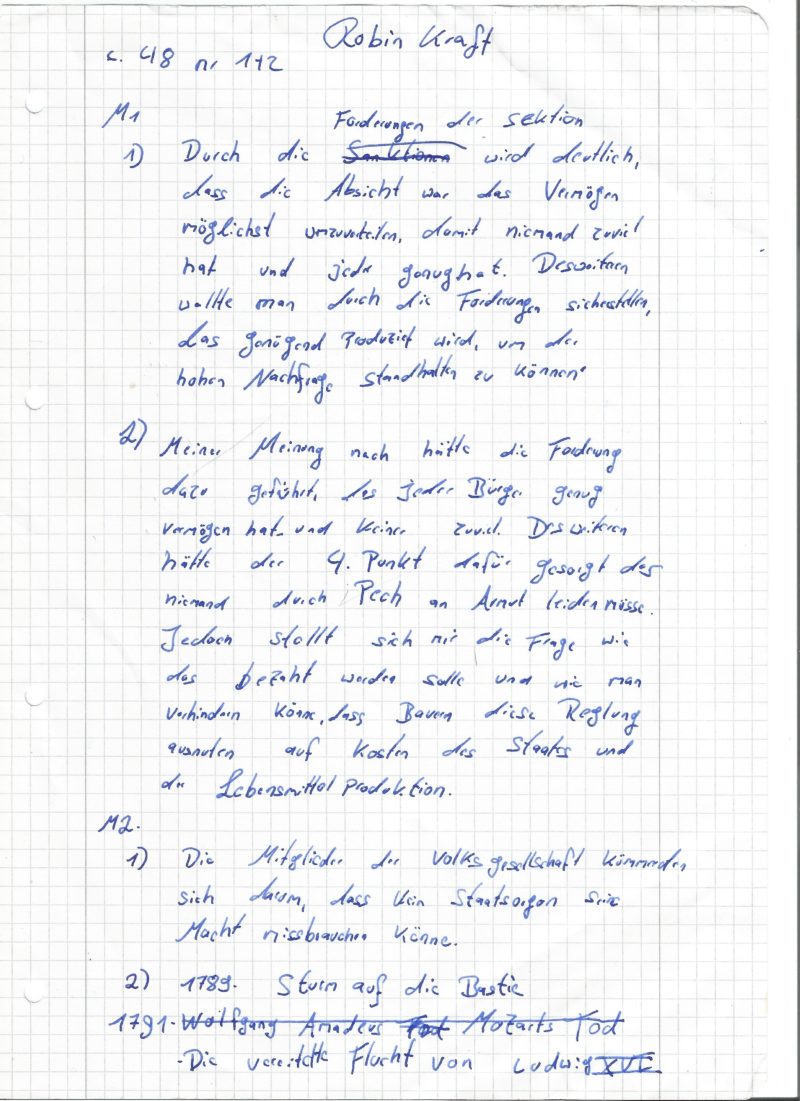 Robin Kraft
s. 48 nr 1+2
M1
Forderungen der sektion
1) Durch die Sanktionen wird deutlich,
dass die Absicht war das Vermögen
möglichst umzuverteilen, damit niemand zuviel
hat und jeder genug hat. Desweiteren
wollte man durch die Forderungen sicherstellen,
das genügend Produziert wird, um der
hohen Nachfrage standhalten zu können.
2) Meiner Meinung nach hätte die Forderung
dazu geführt, das jeder Bürger genug
vermögen hat und keiner zuviel. Desweiteren
hätte der 4. Punkt dafür gesorgt das
niemand durch Pech an Armut leiden müsse.
Jedoch stellt sich mir die Frage wie
das bezaht werden solle und wie man
verhindern könne, dass Bauern diese Reglung
ausnuten auf Kosten des Staates und
der Lebensmittel produktion.
M2.
1) Die Mitglieder der Volksgesellschaft kümmerden
sich darum, dass kein Staatsorgan seine
Macht missbrauchen könne.
2) 1789. Sturm auf die Bastie
1791. Wolfgang Amadeus Tod Mozarts Tod
-Die vereitelte Flucht von Ludwig XVI.